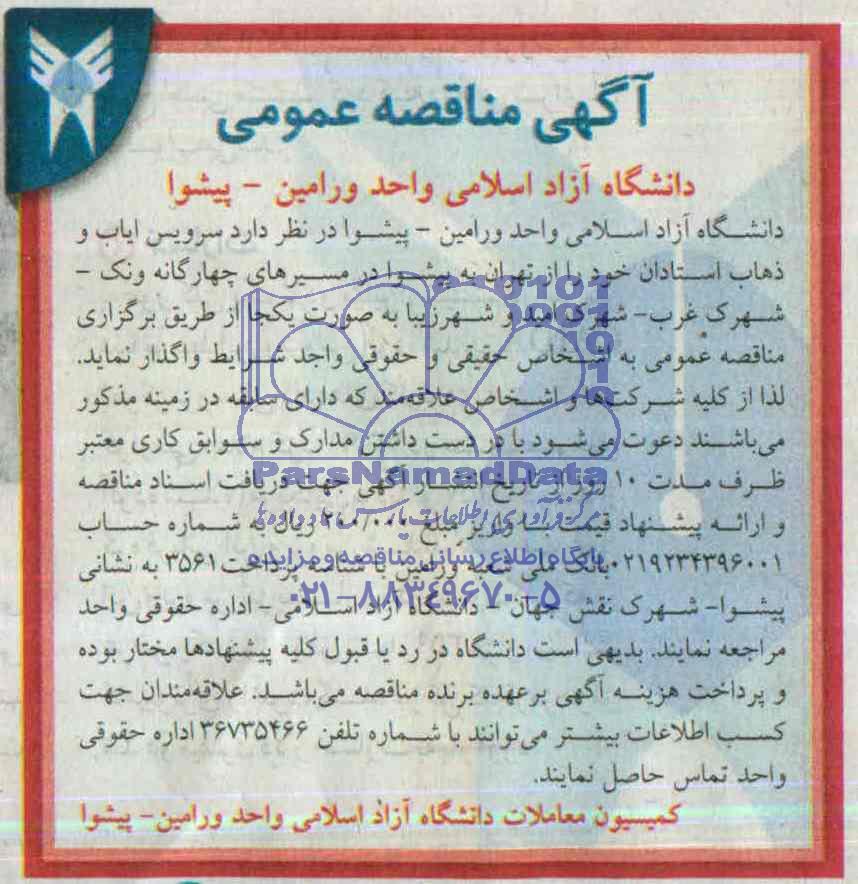 آگهی مناقصه عمومی
دانشگاه آزاد اسلامی واحد ورامین - پیشوا
دانشگاه آزاد اسلامی واحد ورامین - پیشوا در نظر دارد سرویس ایاب و
ذهاب استادان خود را از تهران به پیشوا در مسیرهای چهارگانه ونک -
شهرک غرب- شهرک امید و شهرزیبا به صورت یکجا از طریق برگزاری
مناقصه عمومی به اشخاص حقیقی و حقوقی واجد شرایط واگذار نماید.
لذا از کلیه شرکت‌ها و اشخاص علاقه‌مند که دارای سابقه در زمینه مذکور
می‌باشند دعوت می‌شود با در دست داشتن مدارک و سوابق کاری معتبر
ظرف مدت ۱۰ روز از تاریخ انتشار آگهی جهت دریافت اسناد مناقصه
و ارائه پیشنهاد قیمت با واریز مبلغ ۲۰۰/۰۰۰ ریال به شماره حساب
۰۲۱۹۲۳۴۳۹۶۰۰۱ بانک ملی شعبه ورامین با شناسه پرداخت ۳۵۶۱ به نشانی
پیشوا- شهرک نقش جهان - دانشگاه آزاد اسلامی- اداره حقوقی واحد
مراجعه نمایند. بدیهی است دانشگاه در رد یا قبول کلیه پیشنهادها مختار بوده
و پرداخت هزینه آگهی برعهده برنده مناقصه می‌باشد. علاقه‌مندان جهت
کسب اطلاعات بیشتر می‌توانند با شماره تلفن ۳۶۷۳۵۴۶۶ اداره حقوقی
واحد تماس حاصل نمایند.
کمیسیون معاملات دانشگاه آزاد اسلامی واحد ورامین- پیشوا
ParsNamadData
مرکز فرآوری اطلاعات پارس نماد داده‌ها
پایگاه اطلاع رسانی مناقصه و مزایده
۰۲۱-۸۸۳۴۹۶۷۰-۵